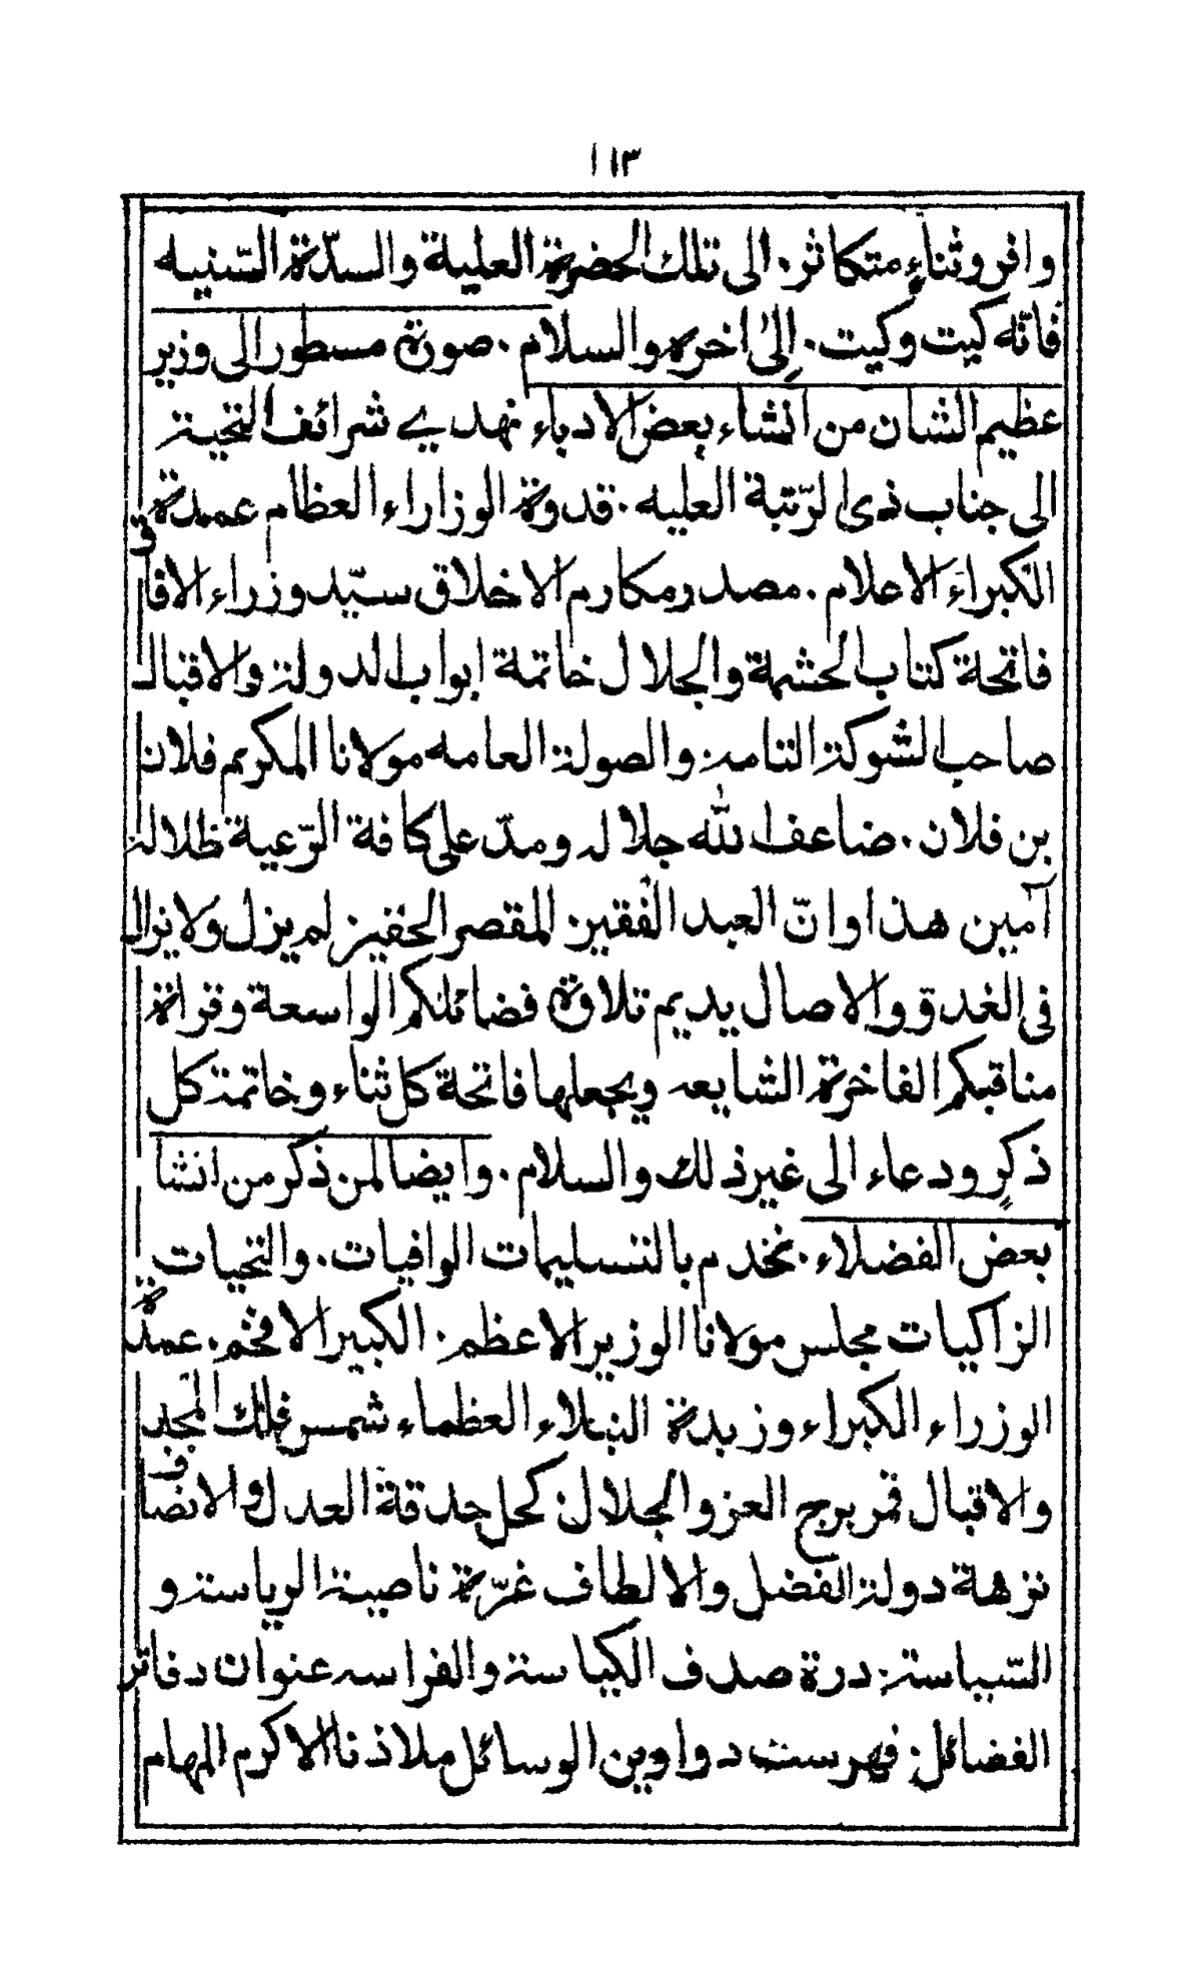 ١١٣
وافر وثناءٍ متكاثر. الى تلك الحضرة العلية والسدّة السّنيه
فانّه كيت وكيت. إلىٰ اخره والسلام. صورة مسطور الى وزير
عظيم الشان من انشاء بعض الادباء نهدي شرائف التحية
الى جناب ذى الرّتبة العليه. قدوة الوزاراء العظام عمدة
الكبراء الاعلام. مصدر مكارم الاخلاق سيّد وزراء الافاق
فاتحة كتاب الحشمة والجلال خاتمة ابواب الدولة والاقبال
صاحب الشوكة التامة والصولة العامه مولانا المكريم فلان
بن فلان. ضاعف الله جلاله ومدّ على كافة الرّعية ظلاله
آمين هذا وانّ العبد الفقير المقصر الحقير لم يزل ولايزال
فى الغدة والاصال يديم تلاوة فضائلكم الواسعة وقراة
مناقبكم الفاخرة الشايعه ويجعلها فاتحة كل ثناء وخاتمة كل
ذكرٍ ودعاء الى غير ذلك والسلام. وايضا لمن ذكر من انشا
بعض الفضلاء. نخدم بالتسليمات الوافيات. والتحيات
الزاكيات مجلس مولانا الوزير الاعظم. الكبير الافخم. عمدة
الوزراء الكبراء وزبدة النبلاء العظماء شمس فلك المجد
والاقبال قمر برج العز والجلال كحل حدقة العدل والانصاف
نزهة دولة الفضل والالطاف غرّة ناصية الرياسة و
السّياسة درة صدف الكياسة والفراسه عنوان دفاتر
الفضائل فهرست دواوين الوسائل ملاذنا الاكرم المهام